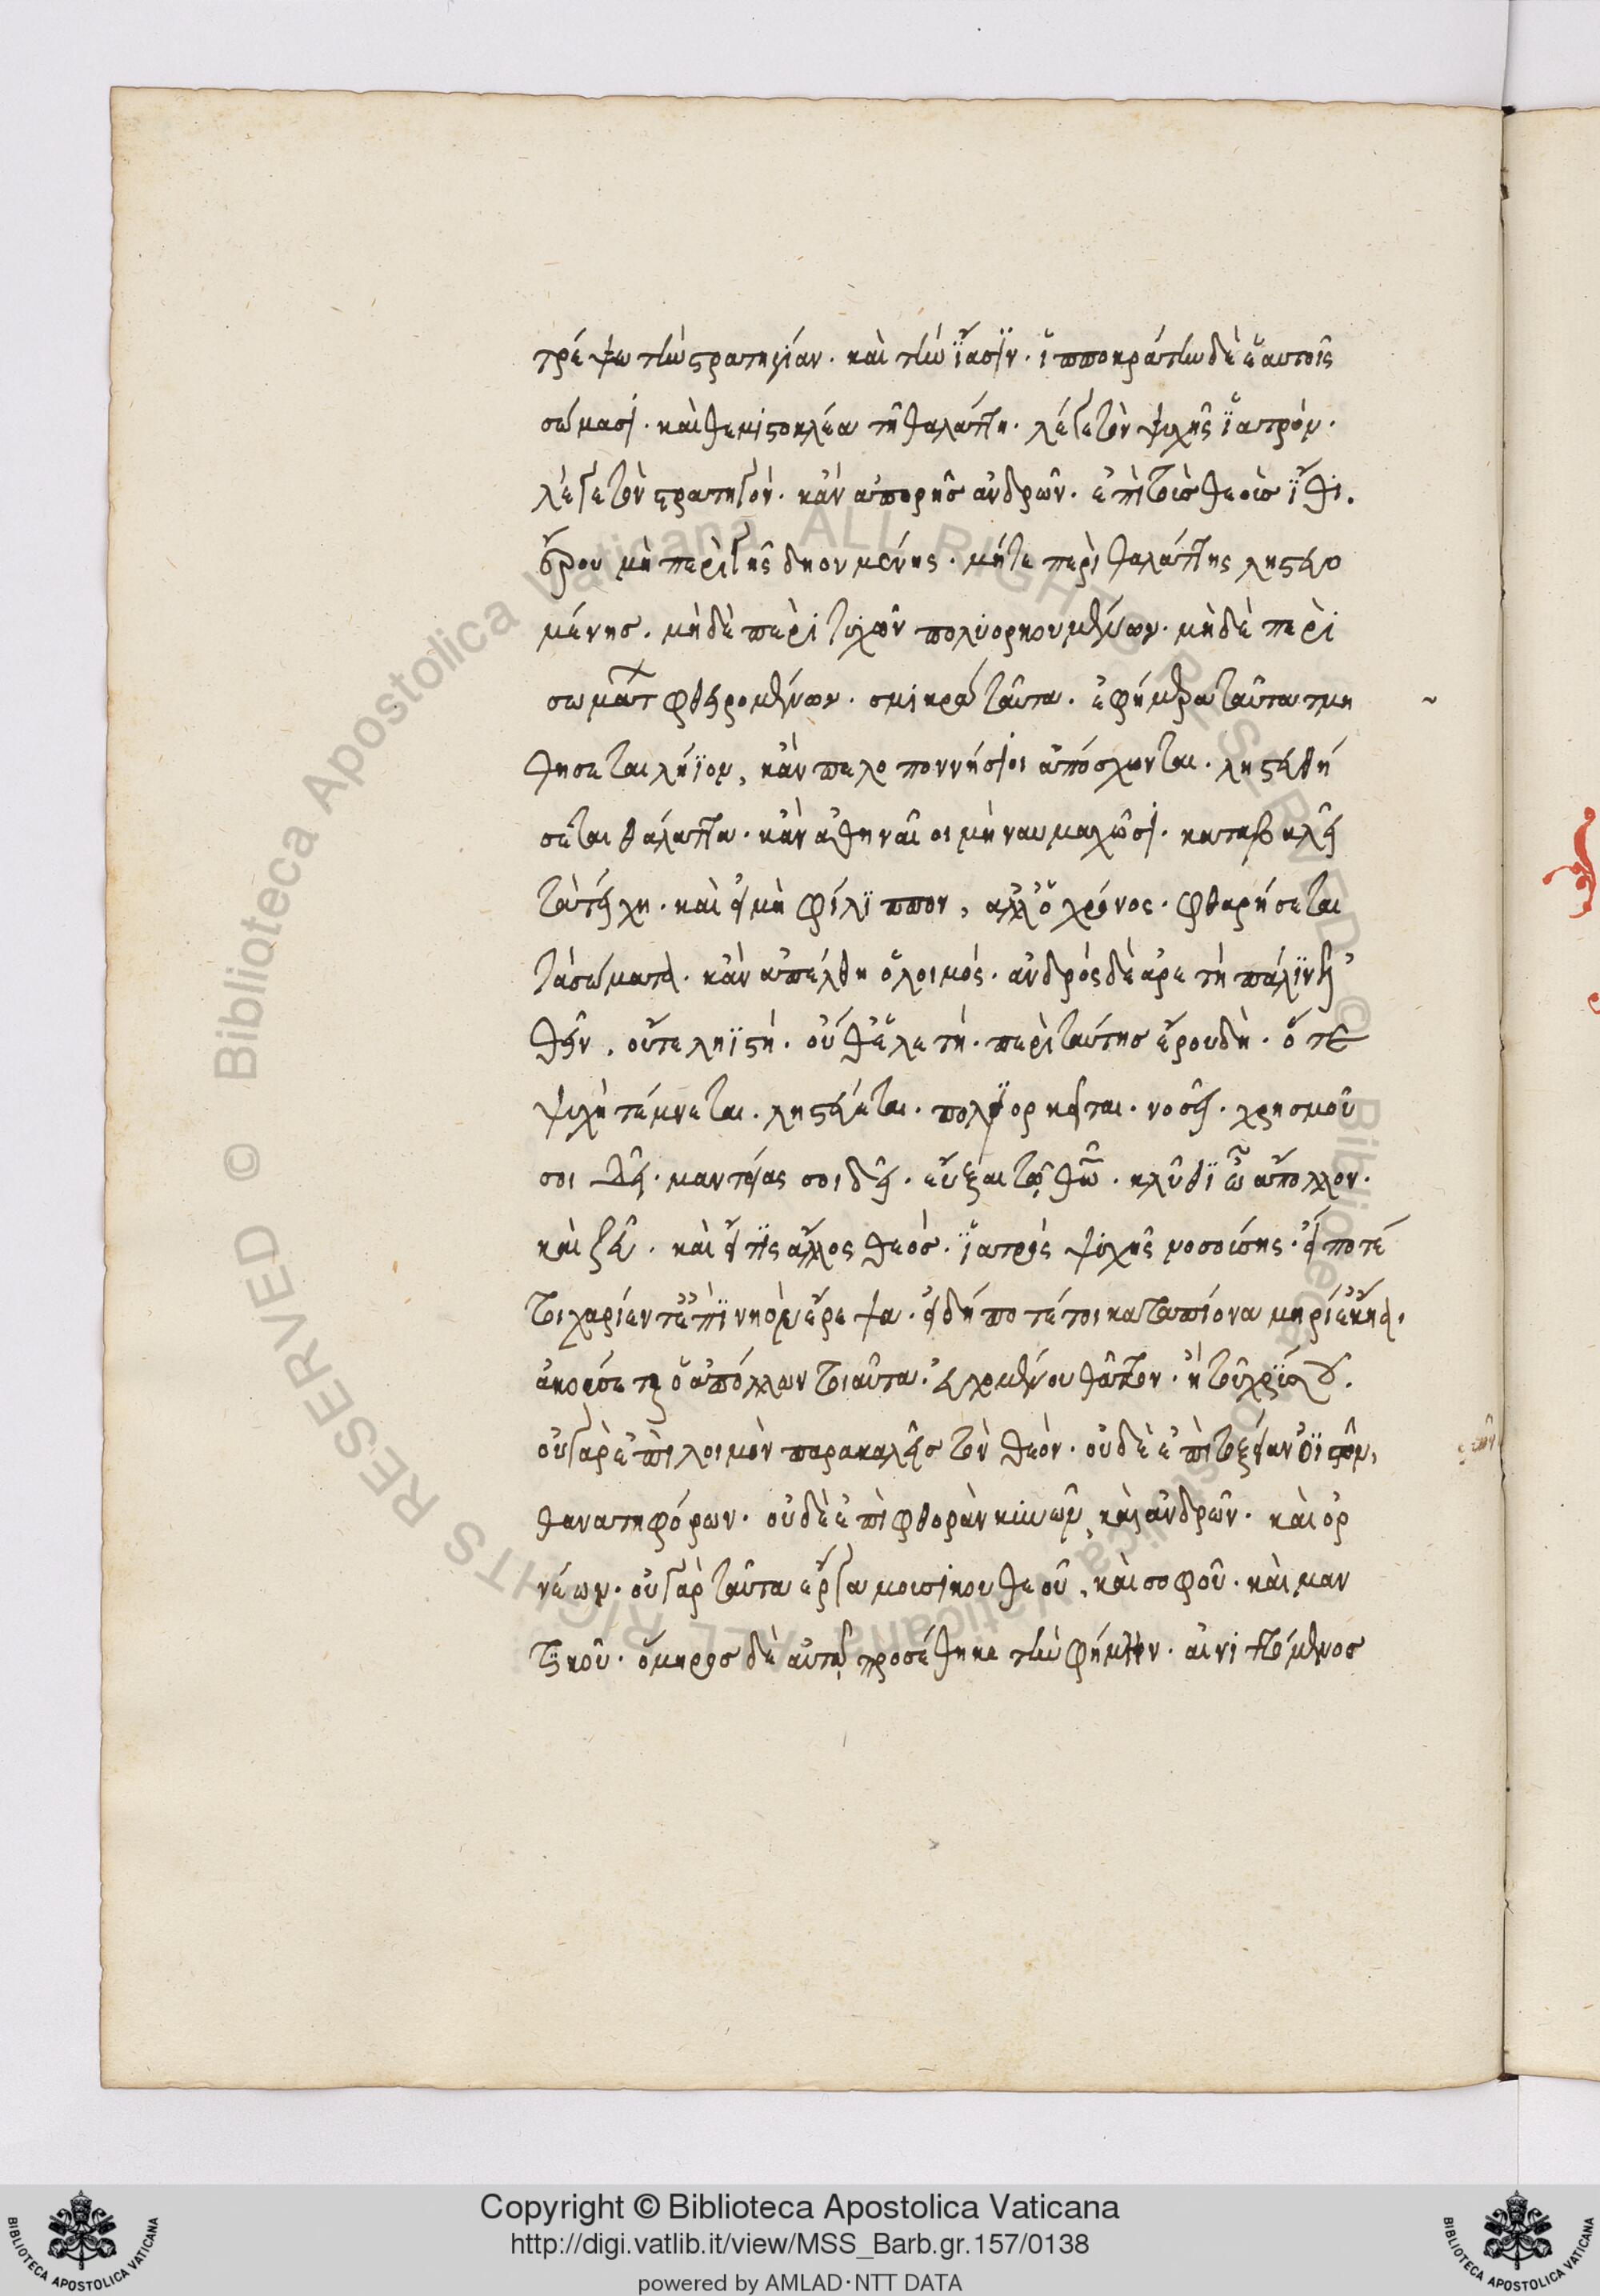 τρέψω τὴν στρατηγίαν. καὶ τὴν ἴ̈ασιν. ἱπποκράτην δὲ ἑαυτοῖς
σώμασι. καὶ θεμιστοκλέα τῆ θαλάττη. λέγε τὸν ψυχῆς ἰατρόν.
λέγε τὸν στρατηγόν. κἂν ἀπορῆς ἀνδρῶν. ἐπὶ τοὺς θεοὺς ἴθι.
μὴ περὶ γῆς δηουμένης. μήτε περὶ θαλάττης ληστευο
μένης. μηδὲ περὶ τειχῶν πολυορκουμένων. μηδὲ περὶ
σωμάτων φθειρομένων. σμικρὰ ταῦτα. ἐφήμερα ταῦτα τμη
θησεται λήϊον, κἂν πελοποννήσιοι ἀπόσχωνται. ληστευθή
σεται θάλαττα. κἂν ἀθηναῖοι μὴ ναυμαχῶσι. καταβαλεῖ
τὰ τείχη. καὶ εἰ μὴ φίλιππον, ἀλλ' ὁ χρόνος. φθαρήσεται
τὰ σώματα. κἂν ἀπέλθη ὁ λοιμός. ἀνδρὸς δὲ ἀρετὴ πάλιν ἐλ
θεῖν. οὔτε ληϊστὴ. οὔθ' ἑλετή. περὶ ταύτης ἐρου δὴ. ὅτε
ψυχὴ τέμνεται. ληστεύεται. πολιορκεῖται. νοσεῖ. χρησμοῦ
σοι δεῖ. μαντείας σοι δεῖ. εὖξαι τῶ θεῶ. κλῦθι ὦ ἄπολλον.
καὶ ζεῦ. καὶ εἴ τις ἄλλος θεὸς. ἰατρὸς ψυχῆς νοσούσης. εἴποτέ
τι χαρίεντ' ἐπὶ νηὸν ἔρεψα. εἰ δή ποτέ τοι κατὰ πίονα μηρί' ἔκηα.
ἀκούσεται ὁ ἀπόλλων τοιαῦτα. εὐχομένου θᾶττον. ἢ τοῦ χρύσου.
οὐ γὰρ ἐπὶ λοιμὸν παρακαλεῖς τὸν θεόν. οὐδὲ ἐπὶ τοξείαν οἰστῶν,
θανατηφόρων. οὐδὲ ἐπὶ φθορὰν κυνῶν, καὶ ἀνδρῶν. καὶ ὀρ
νέων. οὐ γὰρ ταῦτα ἔργα μουσικοῦ θεοῦ, καὶ σοφοῦ. καὶ μαν
τικοῦ. ὅμηρος δὲ αὐτῶ προσέθηκε τὴν φήμην. αἰνιττόμενος
Copyright © Biblioteca Apostolica Vaticana
http://digi.vatlib.it/view/MSS_Barb.gr.157/0138
powered by AMLAD·NTT DATA